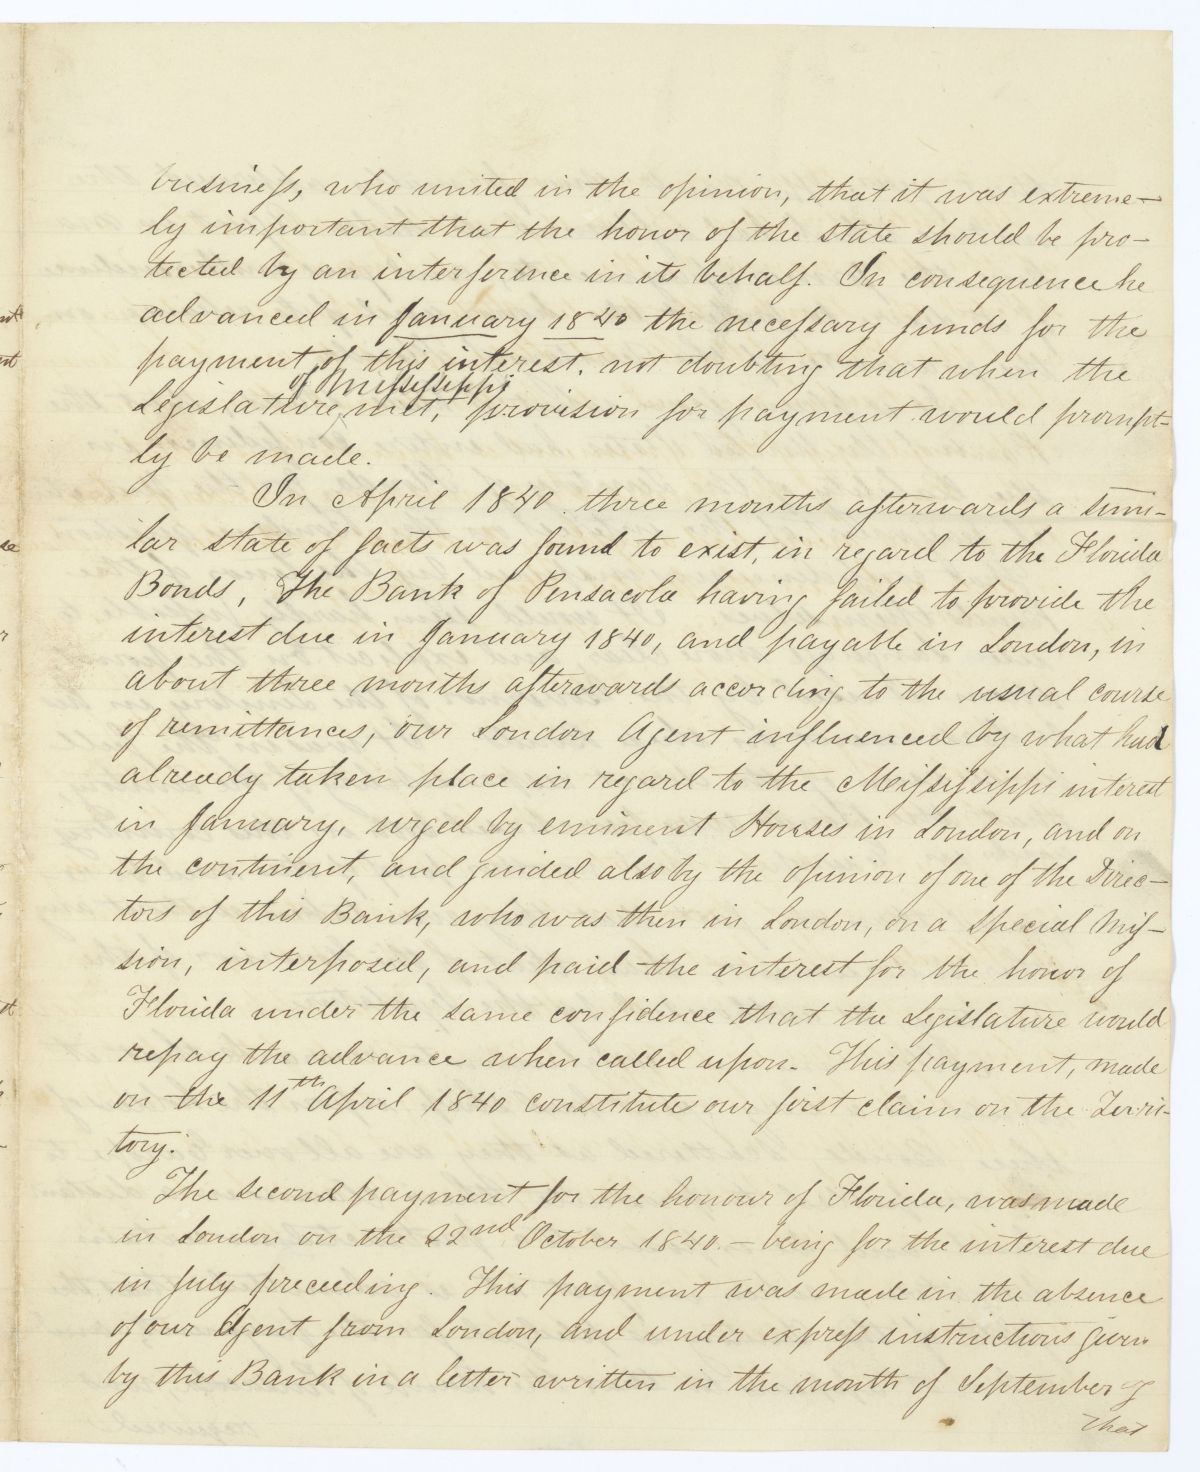 business, who united in the opinion, that it was extreme-
ly important that the honor of the state should be pro-
tected by an interference in its behalf. In consequence he
advanced in January 1840 the necessary funds for the
payment of this interest. not doubting that when the
of Mississippi
Legislature met, provision for payment would prompt-
ly be made.
In April 1840. three months afterwards a simi-
lar state of facts was found to exist, in regard to the Florida
Bonds, The Bank of Pensacola having failed to provide the
interest due in January 1840, and payable in London, in
about three months afterwards according to the usual course
of remittances, our London Agent influenced by what had
already taken place in regard to the Mississippi interest
in January, urged by eminent Houses in London, and on
the continent, and guided also by the opinion of one of the Direc-
tors of this Bank, who was then in London, on a special Mis-
sion, interposed, and paid the interest for the honor of
Florida under the same confidence that the Legislature would
repay the advance when called upon. This payment, made
on the 11th April 1840 constitute our first claim on the Terri-
tory.
The second payment for the honour of Florida, was made
in London on the 22nd October 1840. - being for the interest due
in July preceeding. This payment was made in the absence
of our Agent from London, and under express instructions given
by this Bank in a letter written in the month of September of
that